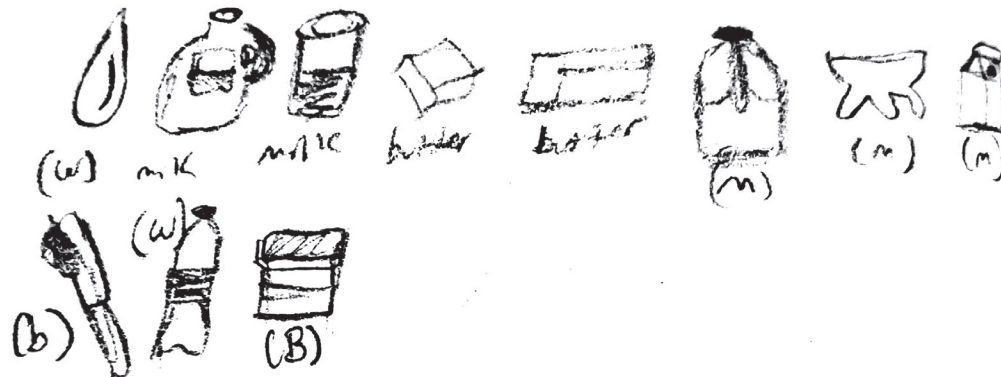 (w) milk milk butter butter (m) (m) (m)
(b) (w) (B)